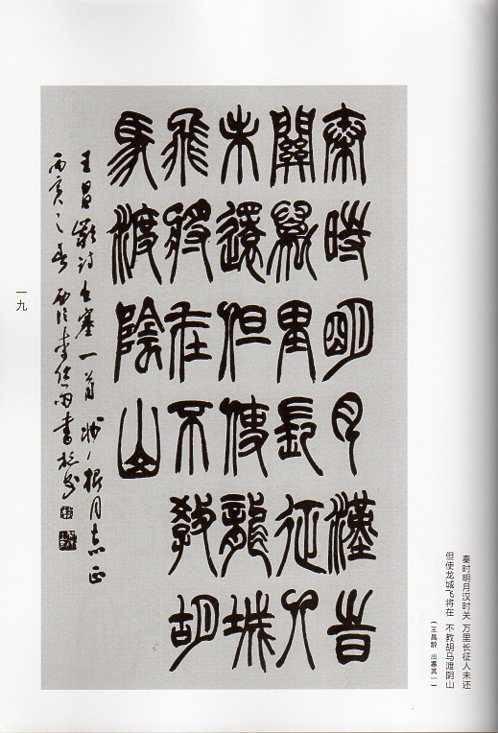 秦時明月漢時
關萬里長征人
未還但使龍城
飛將在不教胡
馬渡陰山
王昌齡詩出塞一首
秦时明月汉时关 万里长征人未还
但使龙城飞将在 不教胡马渡阴山
(王昌龄 出塞其一)
一九